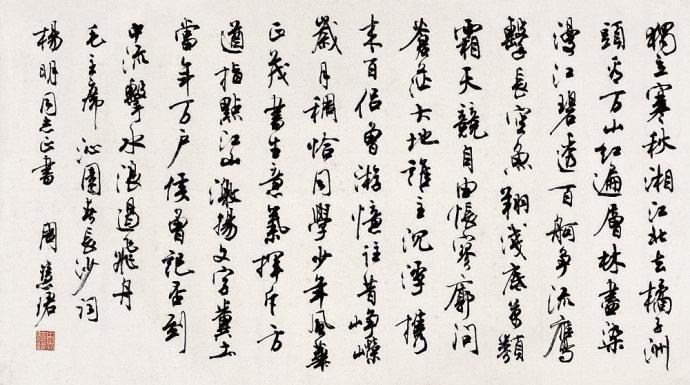 獨立寒秋湘江北去橘子洲
頭看万山红遍層林盡染
漫江碧透百舸争流鷹
擊長空魚翔淺底萬類
霜天競自由悵寥廓問
蒼茫大地誰主沉浮携
来百侣曾游憶往昔崢嶸
歲月稠恰同學少年風華
正茂書生意氣揮斥方
遒指點江山激揚文字糞土
當年万户侯曾記否到
中流擊水浪遏飛舟
毛主席沁園春長沙詞
楊明同志正書 周慧珺